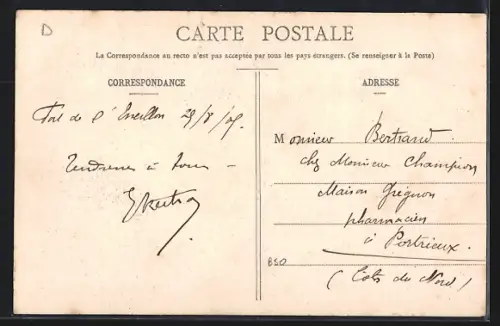 D
CARTE POSTALE
La Correspondance au recto n'est pas acceptée par tous les pays étrangers. (Se renseigner à la Poste)
CORRESPONDANCE
ADRESSE
Fort de l' 29/8/05
Tendresses à tous
Monsieur Bertrand
chez Monsieur Champion
Maison Grignon
pharmacien
à Portrieux
850
(Côtes du Nord)